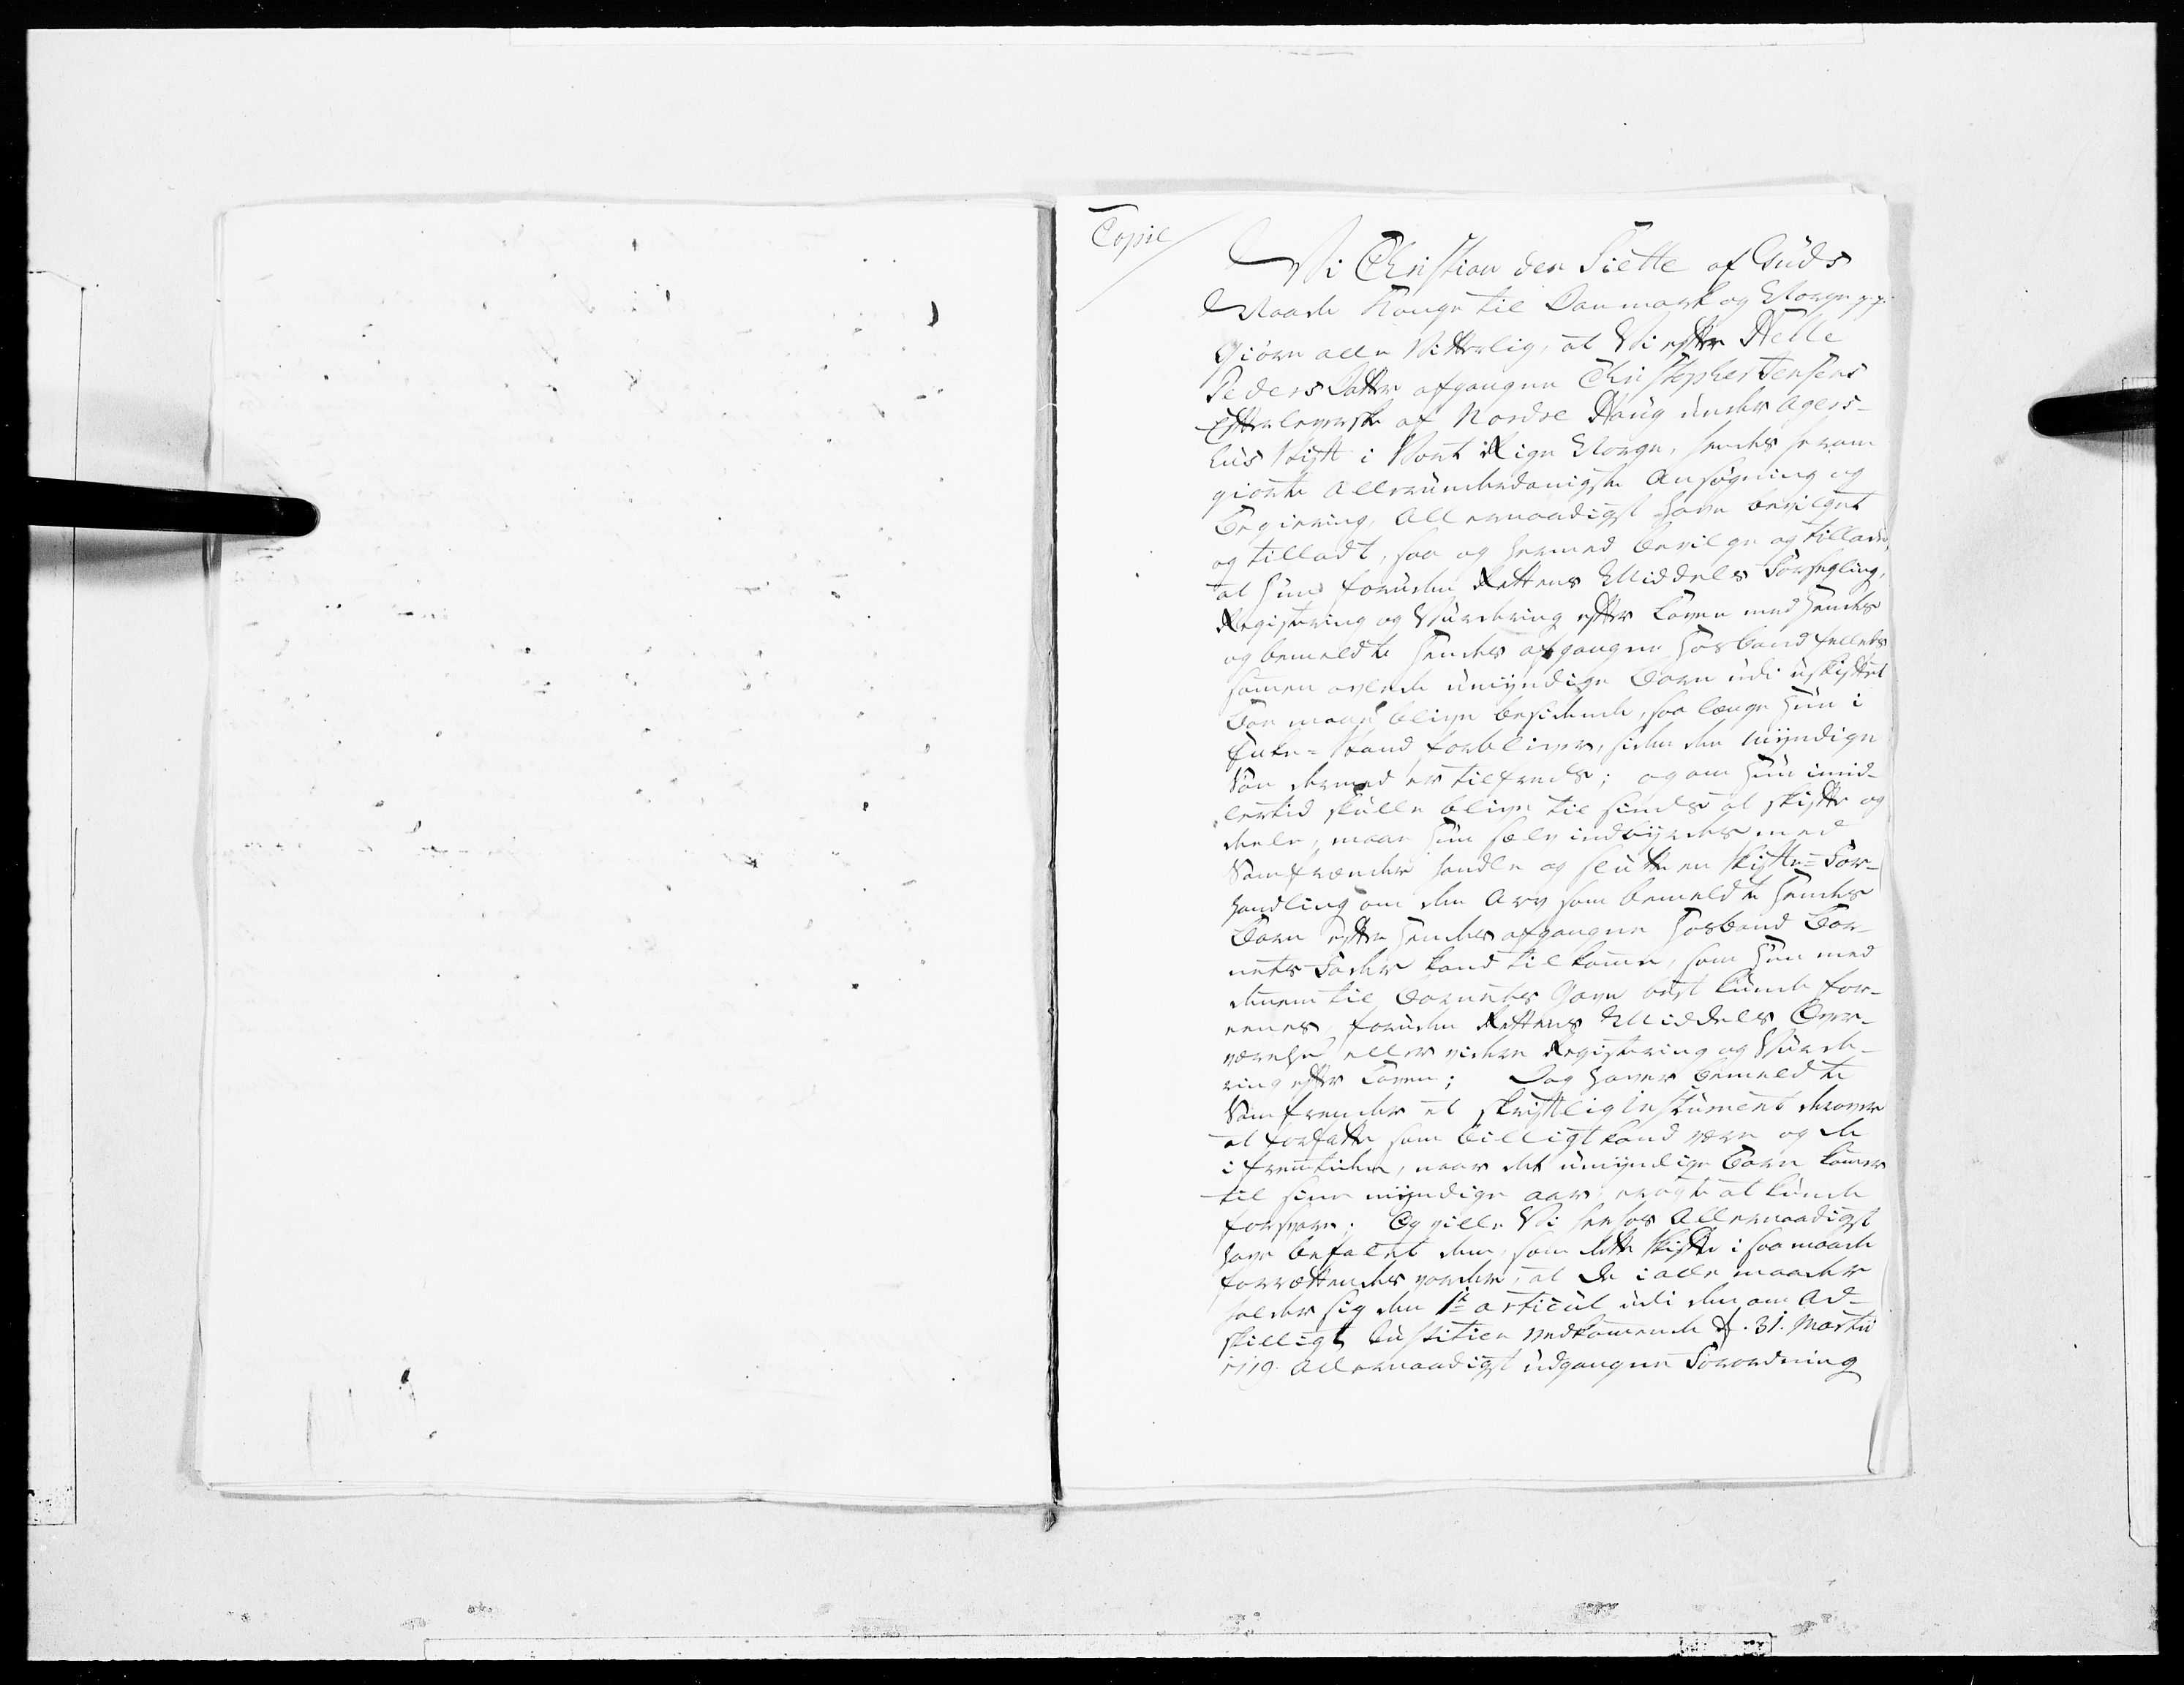 Copie
Vi Christian den Siette af Guds
Naade Konge til Danmark og Norge p.p.
Giøre alle Vitterlig, at Vi efter Helle
Peders Datter afgangne Christopher Jensens
Efterleverske af Nordre Haug under Agers-
huus Stift i Vort Rige Norge, hendes herom
giorte Allerunderdanigste Ansøgning og
Begiering, Allernaadigst have bevilget
og tilladt, saa og hermed bevilge og tillade,
at hun foruden Rettens Middels Forsegling,
Registering og Vurdering efter Loven med hendes
og bemeldte hendes afgangne Hosbond fælleds
sammen avlede umyndige Børn udi uskiftet
Boe maae blive besidende, saa længe hun i
Enke-Stand forbliver, siden den myndige
Søn dermed er tilfreds; og om hun imid-
lertid skulle blive til sinds at skifte og
deele, maae hun selv indbyrdes med
Samfrænder handle og slutte en Skifte-For-
handling om den Arv som bemeldte hendes
Børn efter hendes afgangne Hosbond Bør-
nets Fader kand tilkomme, som hun med
dennem til Børnets Gavn best kunde for-
eenes, foruden Rettens Middels Over-
værelse eller videre Registering og Vurde-
ring efter Loven; Dog haver bemeldte
Samfrender et skriftlig Instrument derover
at forfatte som billigt kand være og de
i fremtiden, naar det umyndige Barn kommer
til sine myndige aar, agte at kunde
forsvare; Og ville Vi herhos Allernaadigst
have befalet dem, som dette Skifte i saa maade
forrettendes vorder, at de i alle maader
holder sig den 1te articul udi den om Ad-
skilligt Justitien vedkommende d. 31. Martii
1719. Allernaadigst udgangne Forordning